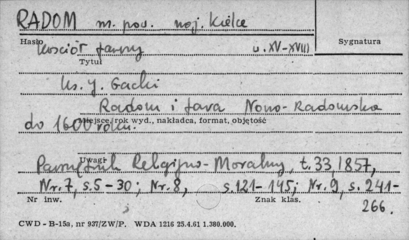 RADOM m. pow. woj. Kielce
Hasło
Kościół farny w. XV-XVIII
Sygnatura
Tytuł
ks. J. Gacki
Radom i fara Nowo-Radomska
do 1600 roku.
Miejsce/rok wyd., nakładca, format, objętość
Uwagi
Pamiętnik Religijno-Moralny, t.33, 1857,
Nr.7, s.5-30; Nr.8, s.121-145; Nr.9, s.241-
266.
Nr inw.
Znak klas.
CWD - B-15a, nr 937/ZW/P. WDA 1216 25.4.61 1.380.000.